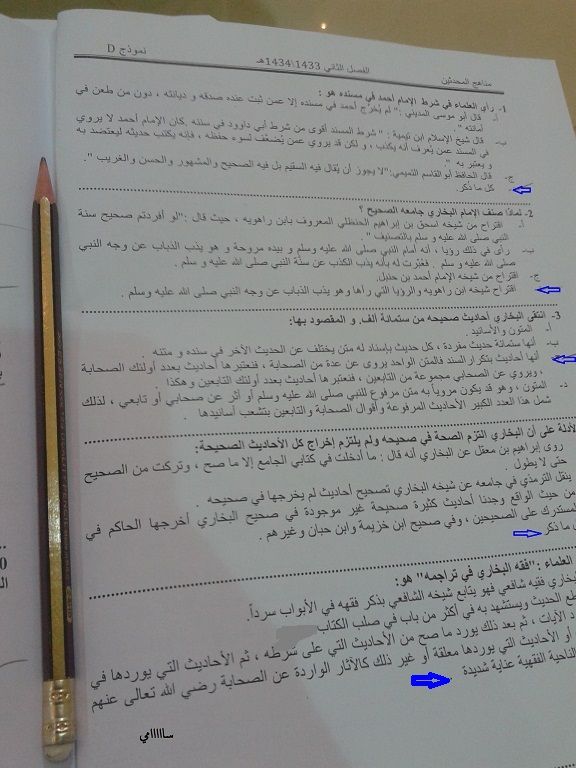 مناهج المحدثين
الفصل الثاني 1433\1434هـ
نموذج D
1- رأي العلماء في شرط الإمام أحمد في مسنده هو :
أ- قال أبو موسى المديني :" لم يُخرّج أحمد في مسنده إلا عمن ثبت عنده صدقه و ديانته ، دون من طعن في
أمانته "
ب- قال شيخ الإسلام ابن تيمية : " شرط المسند أقوى من شرط أبي داوود في سننه .كان الإمام أحمد لا يروي
في المسند عمن يُعرف أنه يكذب ، و لكن قد يروي عمن يُضعّف لسوء حفظه ، فإنه يكتب حديثه ليعتضد به
و يعتبر به "
ج- قال الحافظ أبو القاسم التميمي:"لا يجوز أن يُقال فيه السقيم بل فيه الصحيح والمشهور والحسن والغريب ".
كل ما ذكر.
2- لماذا صنف الإمام البخاري جامعه الصحيح ؟
أ- اقتراح من شيخه اسحق بن إبراهيم الحنظلي المعروف بابن راهويه ، حيث قال :"لو أفردتم صحيح سنة
النبي صلى الله عليه و سلم بالتصنيف" .
ب- رأى في ذلك رؤيا ، أنه أمام النبي صلى الله عليه وسلم و بيده مروحة و هو يذب الذباب عن وجه النبي
صلى الله عليه و سلم . فعُبّرت له بأنه يذب الكذب عن سنّة النبي صلى الله عليه و سلم .
ج- اقتراح من شيخه الإمام أحمد بن حنبل.
اقتراح شيخه ابن راهويه والرؤيا التي رآها وهو يذب الذباب عن وجه النبي صلى الله عليه وسلم .
3- انتقى البخاري أحاديث صحيحه من ستمائة ألف. و المقصود بها:
أ- المتون والأسانيد .
ب- أنها ستمائة حديث مفردة ، كل حديث بإسناد له متن يختلف عن الحديث الآخر في سنده و متنه .
أنها أحاديث بتكرار السند فالمتن الواحد يروى عن عدة من الصحابة ، فنعتبرها أحاديث بعدد أولئك الصحابة
، ويروي عن الصحابي مجموعة من التابعين ، فنعتبرها أحاديث بعدد أولئك التابعين وهكذا .
د. المتون ، وهو قد يكون مروياً به متن مرفوع للنبي صلى الله عليه وسلم أو أثر عن صحابي أو تابعي ، لذلك
شمل هذا العدد الكبير الأحاديث المرفوعة وأقوال الصحابة والتابعين بتشعب أسانيدها .
الأدلة على أن البخاري التزم الصحة في صحيحه ولم يلتزم إخراج كل الأحاديث الصحيحة:
روى إبراهيم بن معقل عن البخاري أنه قال : ما أدخلت في كتابي الجامع إلا ما صح ، وتركت من الصحيح
حتى لا يطول .
ينقل الترمذي في جامعه عن شيخه البخاري تصحيح أحاديث لم يخرجها في صحيحه .
من حيث الواقع وجدنا أحاديث كثيرة صحيحة غير موجودة في صحيح البخاري أخرجها الحاكم في
المستدرك على الصحيحين ، وفي صحيح ابن خزيمة وابن حبان وغيرهم .
ما ذكر
العلماء :"فقه البخاري في تراجمه" هو:
البخاري فقيه شافعي فهو يتابع شيخه الشافعي بذكر فقهه في الأبواب سرداً.
الحديث ويستشهد به في أكثر من باب في صلب الكتاب
الآيات ، ثم بعد ذلك يورد ما صح من الأحاديث التي على شرطه ، ثم الأحاديث التي يوردها في
أو الأحاديث التي يوردها معلقة أو غير ذلك كالآثار الواردة عن الصحابة رضي الله تعالى عنهم
الناحية الفقهية عناية شديدة
ســاااامي